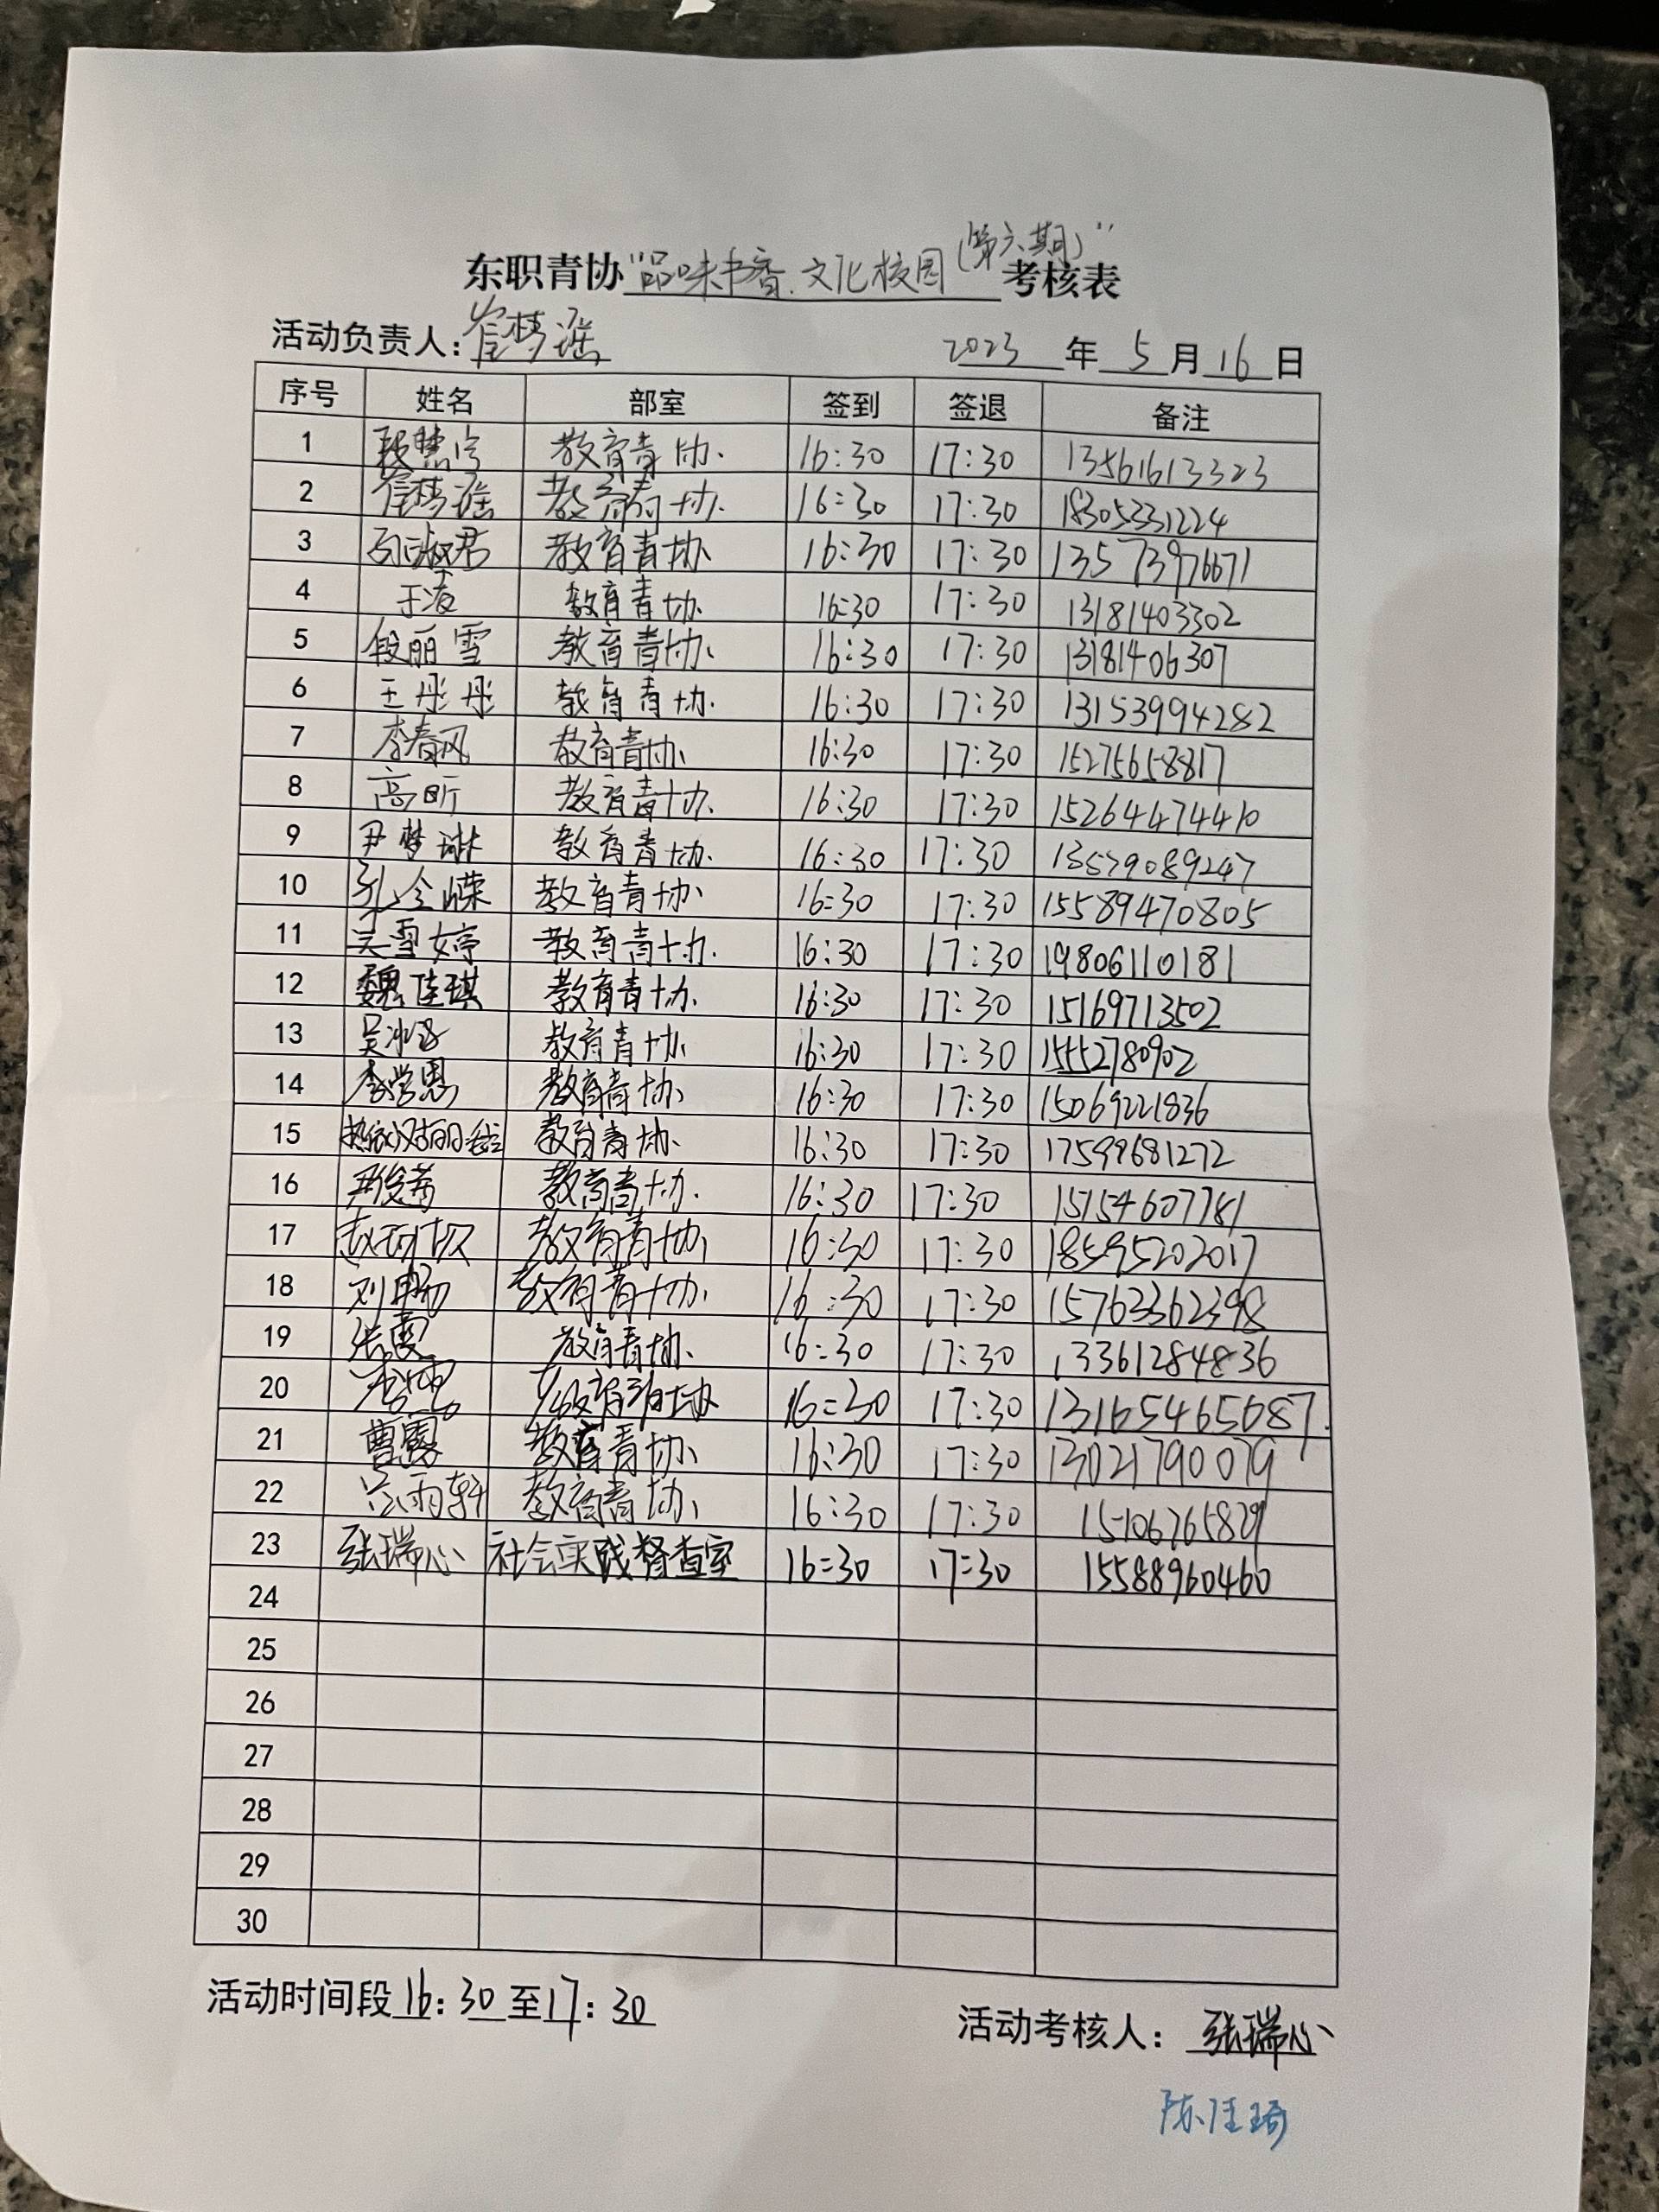 (第六期)"
东职青协"品味书香.文化校园 考核表
活动负责人:崔梦瑶 2023 年 5 月 16 日
序号 姓名 部室 签到 签退 备注
1 段慧宇 教育青协. 16:30 17:30 13561613323
2 崔梦瑶 教育青协. 16:30 17:30 18305331224
3 石淑君 教育青协 16:30 17:30 13573976671
4 于凌 教育青协. 16:30 17:30 13181403302
5 段丽雪 教育青协. 16:30 17:30 13181406307
6 王彤彤 教育青协. 16:30 17:30 131539994282
7 李春风 教育青协 16:30 17:30 15275658817
8 高昕 教育青协. 16:30 17:30 15264474410
9 尹梦琳 教育青协. 16:30 17:30 13579089247
10 孔令嵘 教育青协 16:30 17:30 15589470805
11 吴雪婷 教育青协. 16:30 17:30 19806110181
12 魏佳琪 教育青协 16:30 17:30 15169713502
13 吴冰 教育青协 16:30 17:30 15552780902
14 李学恩 教育青协 16:30 17:30 15069221836
15 教育青协. 16:30 17:30 17599681272
16 教育青协. 16:30 17:30 15154607781
17 教育青协 16:30 17:30 18595202017
18 刘畅 教育青协. 16:30 17:30 15763362398
19 张雯 教育青协. 16:30 17:30 13361284836
20 教育青协 16:30 17:30 13165465687.
21 曹露 教育青协 16:30 17:30 13021790079
22 雨轩 教育青协 16:30 17:30 15106765829
23 张瑞心 社会实践督查室 16:30 17:30 15588960460
24
25
26
27
28
29
30
活动时间段 16:30 至 17:30 活动考核人: 张瑞心
陈佳琦